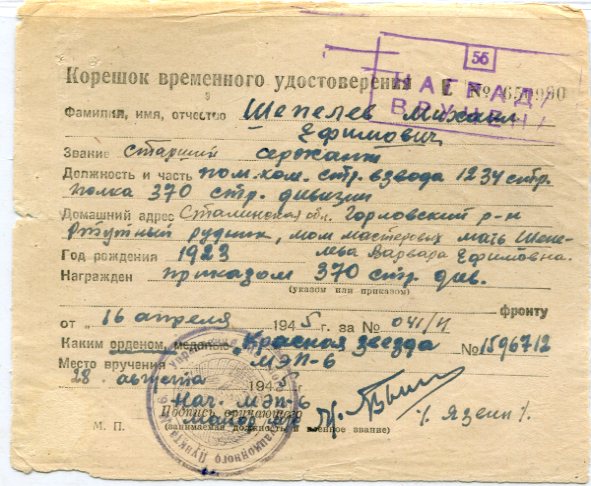 56
НАГРАДА
ВРУЧЕНА
Корешок временного удостоверения № 650990
Фамилия, имя, отчество Шепелев Михаил
Ефимович
Звание Старший сержант
Должность и часть пом. ком. стр. взвода 1234 стр.
полка 370 стр. дивизии
Домашний адрес Сталинская обл. Горловский р-н
Ртутный рудник, мать Шепе-
лева Варвара Ефимовна.
Год рождения 1923
Награжден приказом 370 стр. див.
(указом или приказом)
фронту
от „16 апреля 1945 г. за № 041/н
Каким орденом, медалью Красная звезда №1596712
Место вручения МЭП-6
28. августа 1945 г
Нач. МЭП-6
Подпись вручающего
Майор
(занимаемая должность и военное звание)
М. П.